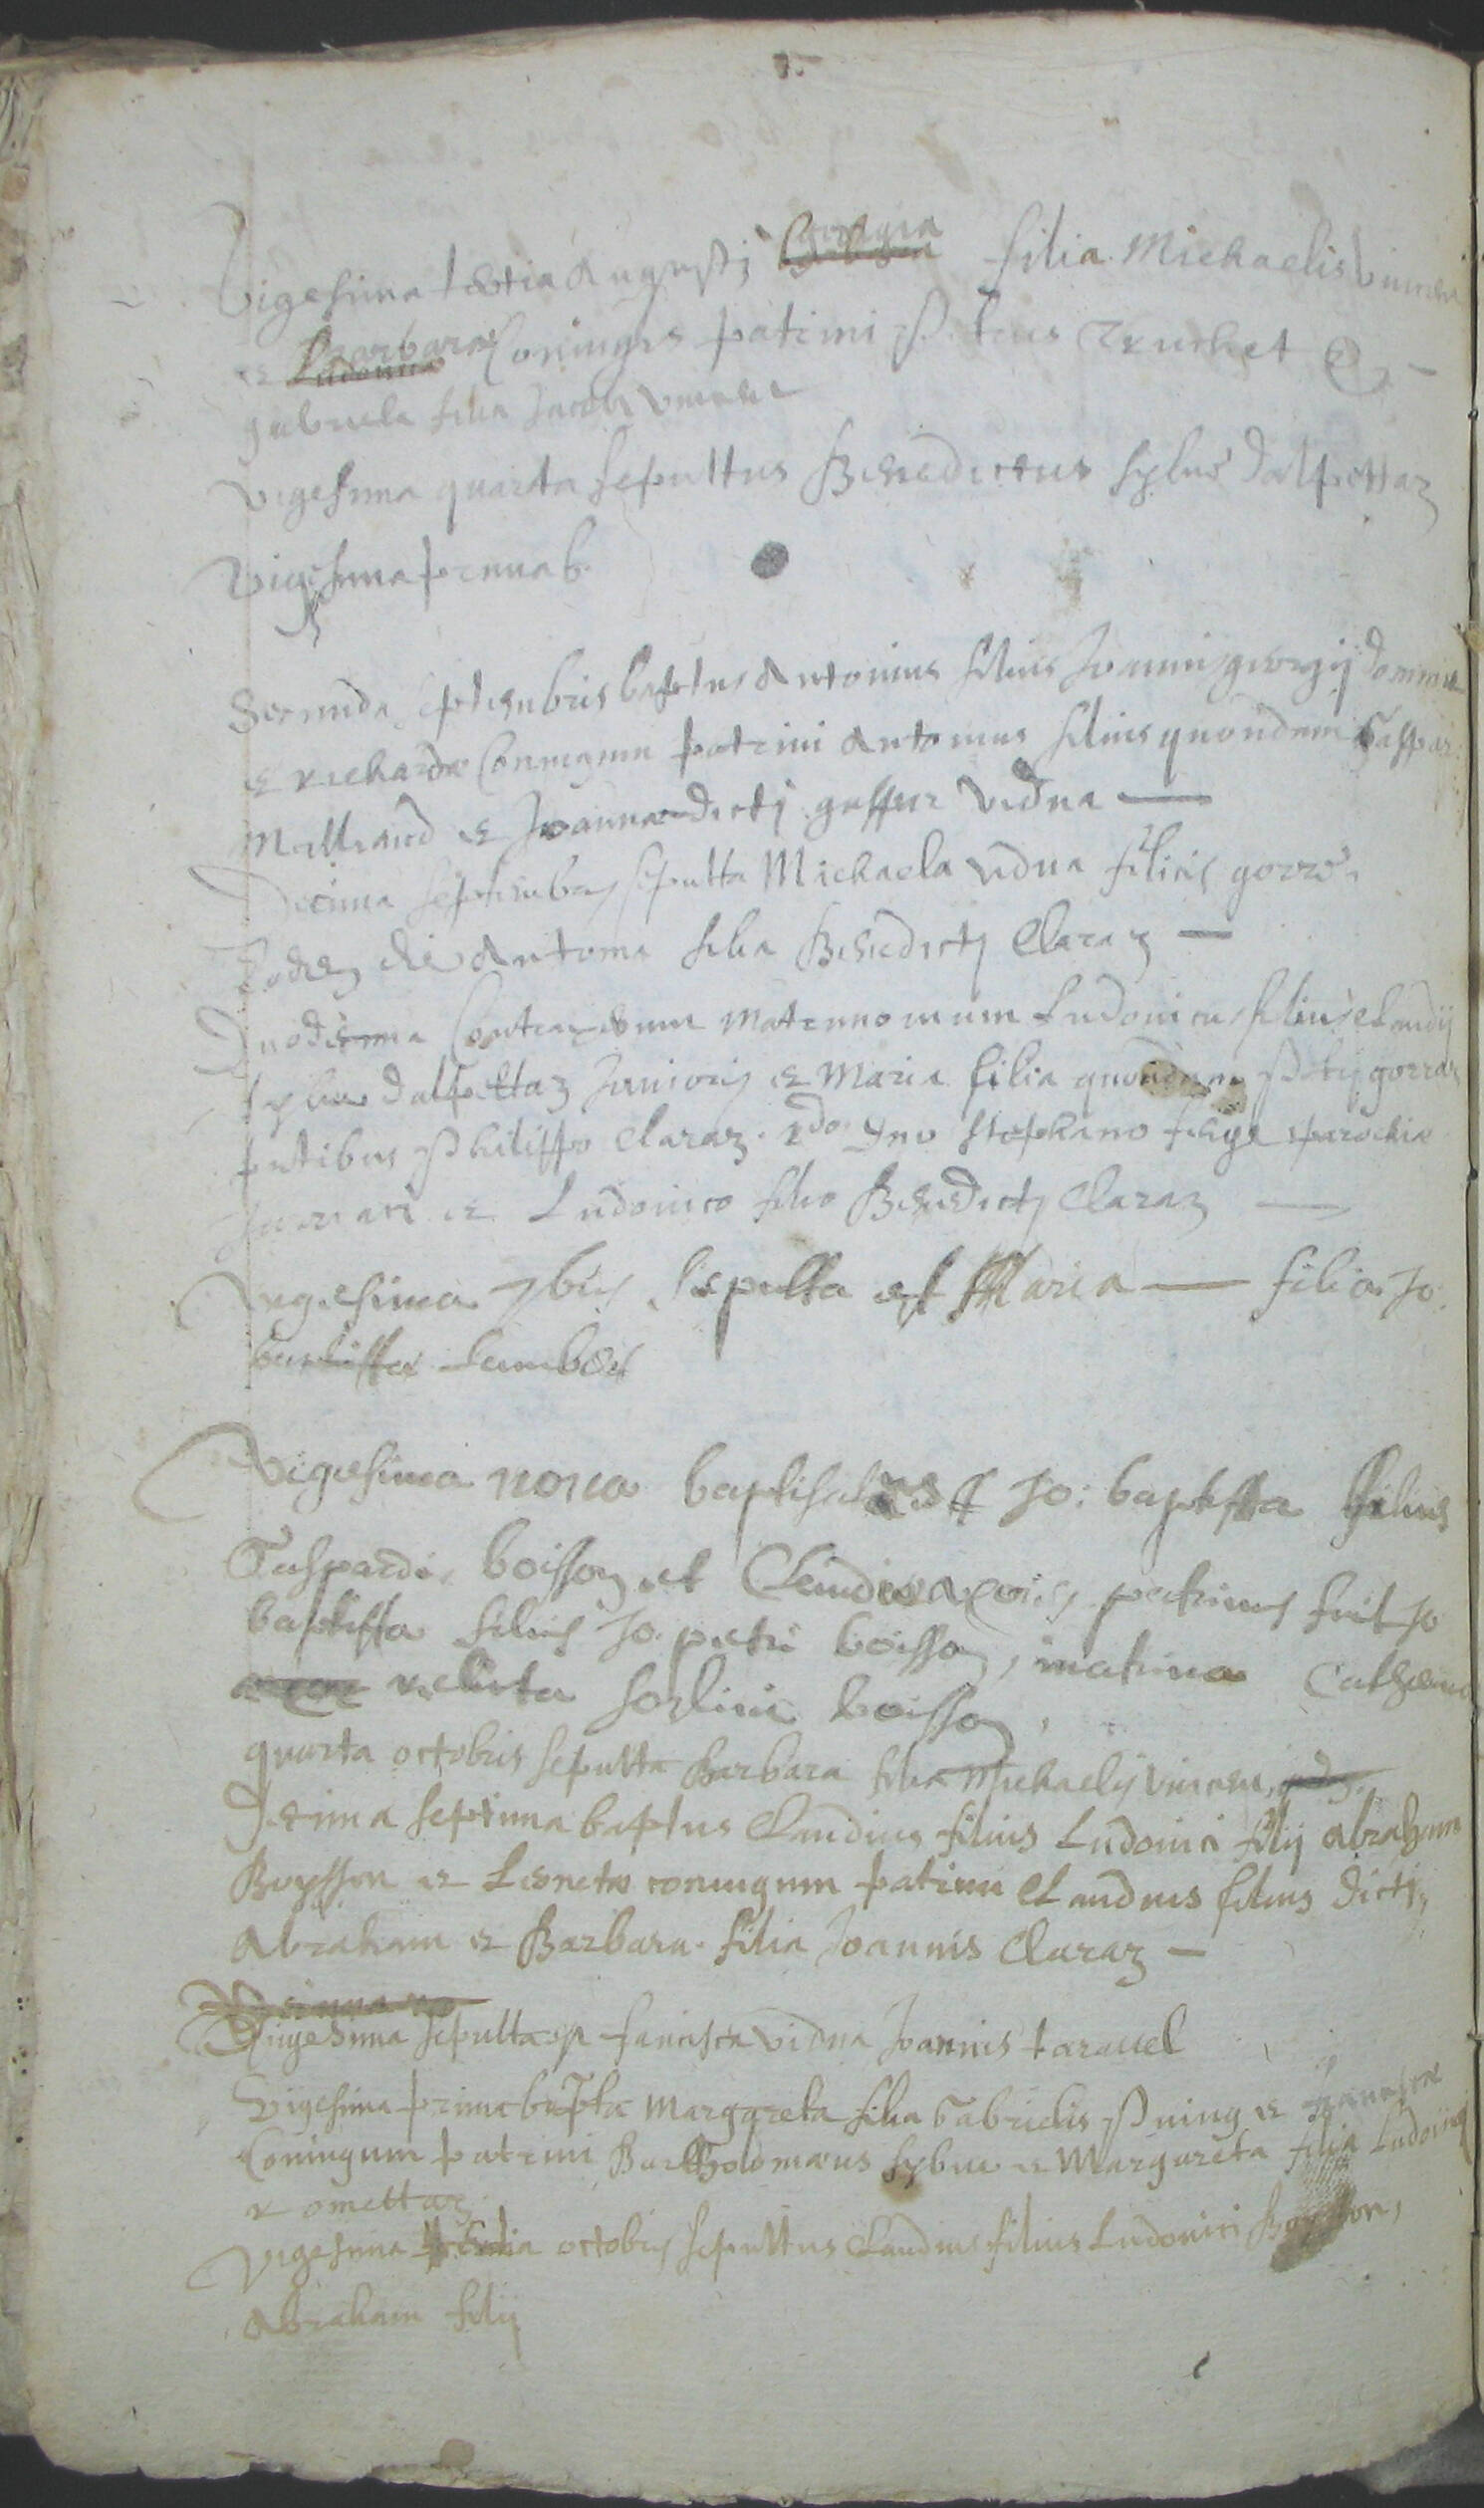 Vigesima tertia Augustj georgia filia Michaelis Vincen
et Barbara Coniugis patrini Petrus Truchet &
gabriela filia Jacobi vincen
vigesima quarta sepultus Benedictus sylue dalpettaz
Vigesima prima b.
Secunda septembris baptus Antonius filius Joannis georgij
et richarde Coniugum patrini Antonius filius quondam Gaspar
Milliaud et Joanna dictj gaspar vidua
Decima septembris sepulta Michaela vidua felicis gorré
Eodem die Antonia filia Benedictj Claraz
Duodecima Contraxerunt matrimonium Ludovicus filius Claudij
sylue dalpettaz Junioris et Maria filia quondam gorraz
pntibus Philippo Claraz. Rdo Dno Stephano parochiæ
Jarriati et Ludouico filio Benedictj Claraz
Vigesima 7bris sepulta est Maria filia Jo:
baptista
Vigesima nona baptisatus est Jo: baptista filius
Gaspardi boisson et Claudiæ patrinus fuit Jo
baptista filius Jo. petri boisson, matrina Catherina
relicta sorlini boisson,
quarta octobris sepulta Barbara filia Michaelis vincen
Decima septima baptus Claudius filius Ludouici filij Abraham
Boysson et coniugum patrini Claudius filius dictj
Abraham et Barbara filia Joannis Claraz
Vigesima sepulta est francisca vidua Joannis tarauel
Vigesima prima bapta Margareta filia Gabrielis et francisca
Coniugum patrini Bartholomæus sylue et Margareta filia Ludouici
romettaz
Vigesima tertia octobris sepultus Claudius filius Ludouici Boysson,
Abraham filij